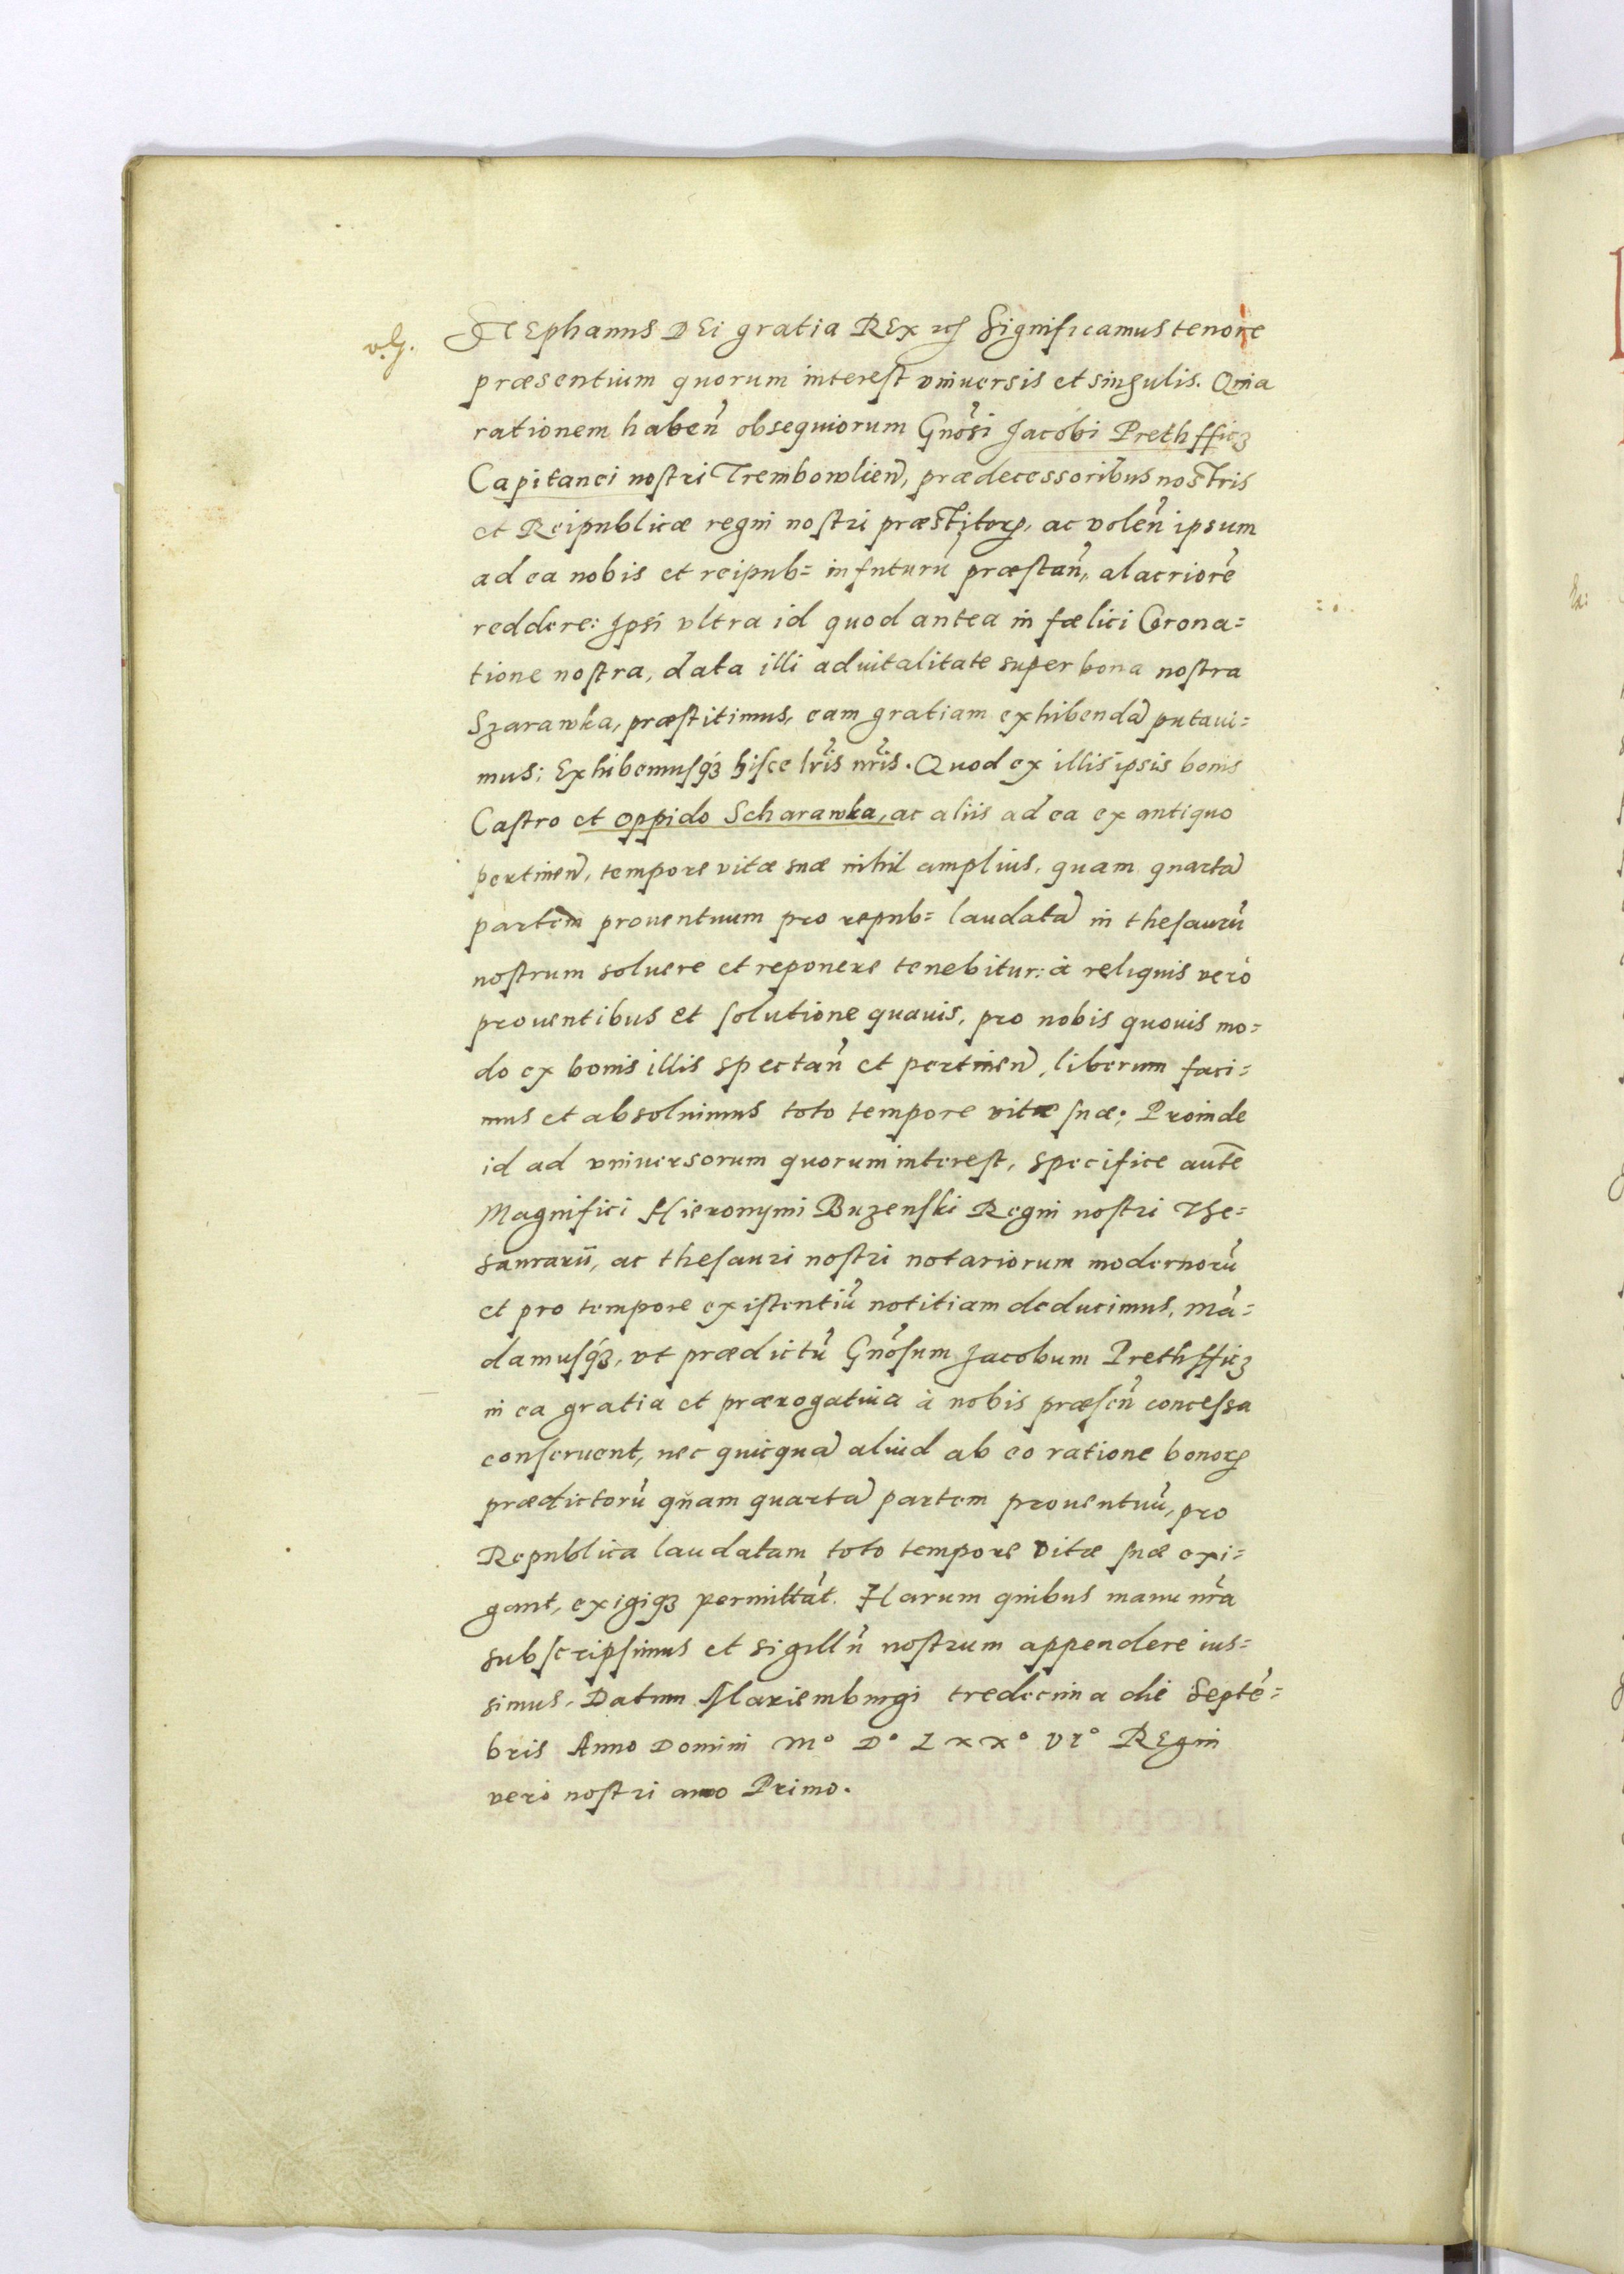 Stephanus DEi gratia REx etc Significamus tenore
præsentium quorum interest vniuersis et singulis. Quia
rationem haben̉ obsequiorum Gnősi Jacobi Prethfficz
Capitanei nostri Trembowlien̉, prædecessoribus nostris
et Reipublicæ regni nostri præstitorꝝ, ac volen̉ ipsum
ad ea nobis et reipub= in futurũ præstan̉, alacriorẽ
reddere: Ipsi vltra id quod antea in fælici Corona=
tione nostra, data illi aduitalitate super bona nostra
Szarawka, præstitimus, eam gratiam exhibendã putaui=
mus; Exhibemusqꝫ hisce lr̃is nr̃is. Quod ex illis ipsis bonis
Castro et oppido Scharawka, ac aliis ad ea ex antiquo
pertinen̉, tempore vitæ suæ nihil amplius, quam quartã
partem prouentuum pro repub= laudatã in thesaurũ
nostrum soluere et reponere tenebitur: à reliquis verò
prouentibus et solutione quauis, pro nobis quouis mo=
do ex bonis illis spectan̉ et pertinen̉, liberum faci=
mus et absoluimus toto tempore vitæ suæ; Proinde
id ad vniuersorum quorum interest, specifice autẽ
Magnifici Hieronymi Buzenski Regni nostri The=
saurarii, ac thesauri nostri notariorum modernorũ
et pro tempore existentiũ notitiam deducimus, mã=
damusqꝫ, vt prædictũ Gnősum Jacobum Prethfficz
in ea gratia et prærogatiua à nobis præsen̉ concessa
conseruent, nec quicquã aliud ab eo ratione bonorꝝ
prædictorũ quam quartã partem prouentuũ, pro
Republica laudatam toto tempore vitæ suæ exi=
gant, exigiqꝫ permittãt. Harum quibus manu nr̃a
subscripsimus et sigillũ nostrum appendere ius=
simus. Datum Mariemburgi tredecima die Septẽ=
bris Anno Domini Mº Dº Lxxº VIº REgni
verò nostri anno Primo.